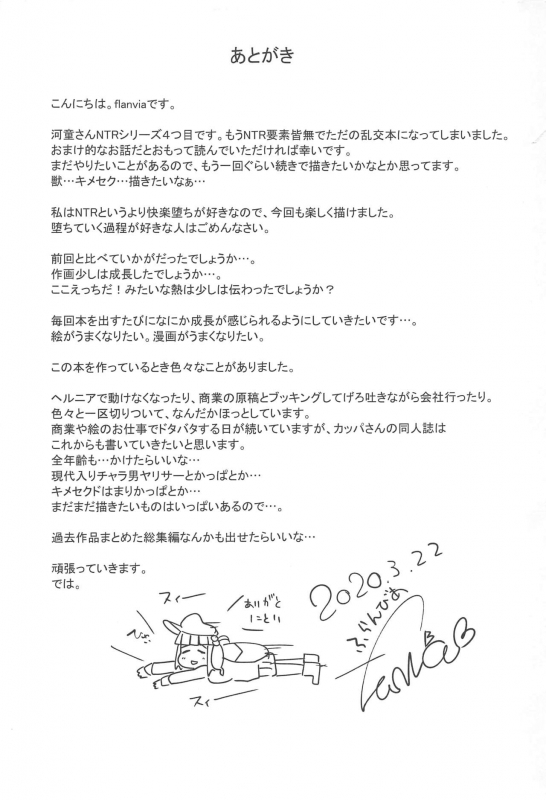 あとがき
こんにちは。flanviaです。
河童さんNTRシリーズ４つ目です。もうNTR要素皆無でただの乱交本になってしまいました。
おまけ的なお話だとおもって読んでいただければ幸いです。
まだやりたいことがあるので、もう一回ぐらい続きで描きたいかなとか思ってます。
獣…キメセク…描きたいなぁ…
私はNTRというより快楽堕ちが好きなので、今回も楽しく描けました。
堕ちていく過程が好きな人はごめんなさい。
前回と比べていかがだったでしょうか…。
作画少しは成長したでしょうか…。
ここえっちだ！みたいな熱は少しは伝わったでしょうか？
毎回本を出すたびになにか成長が感じられるようにしていきたいです…。
絵がうまくなりたい。漫画がうまくなりたい。
この本を作っているとき色々なことがありました。
ヘルニアで動けなくなったり、商業の原稿とブッキングしてげろ吐きながら会社行ったり。
色々と一区切りついて、なんだかほっとしています。
商業や絵のお仕事でドタバタする日が続いていますが、カッパさんの同人誌は
これからも書いていきたいと思います。
全年齢も…かけたらいいな…
現代入りチャラ男ヤリサーとかっぱとか…
キメセクドはまりかっぱとか…
まだまだ描きたいものはいっぱいあるので…。
過去作品まとめた総集編なんかも出せたらいいな…
頑張っていきます。
では。
スィー
ありがと
スィー
2020.3.22
ふらんびぁ